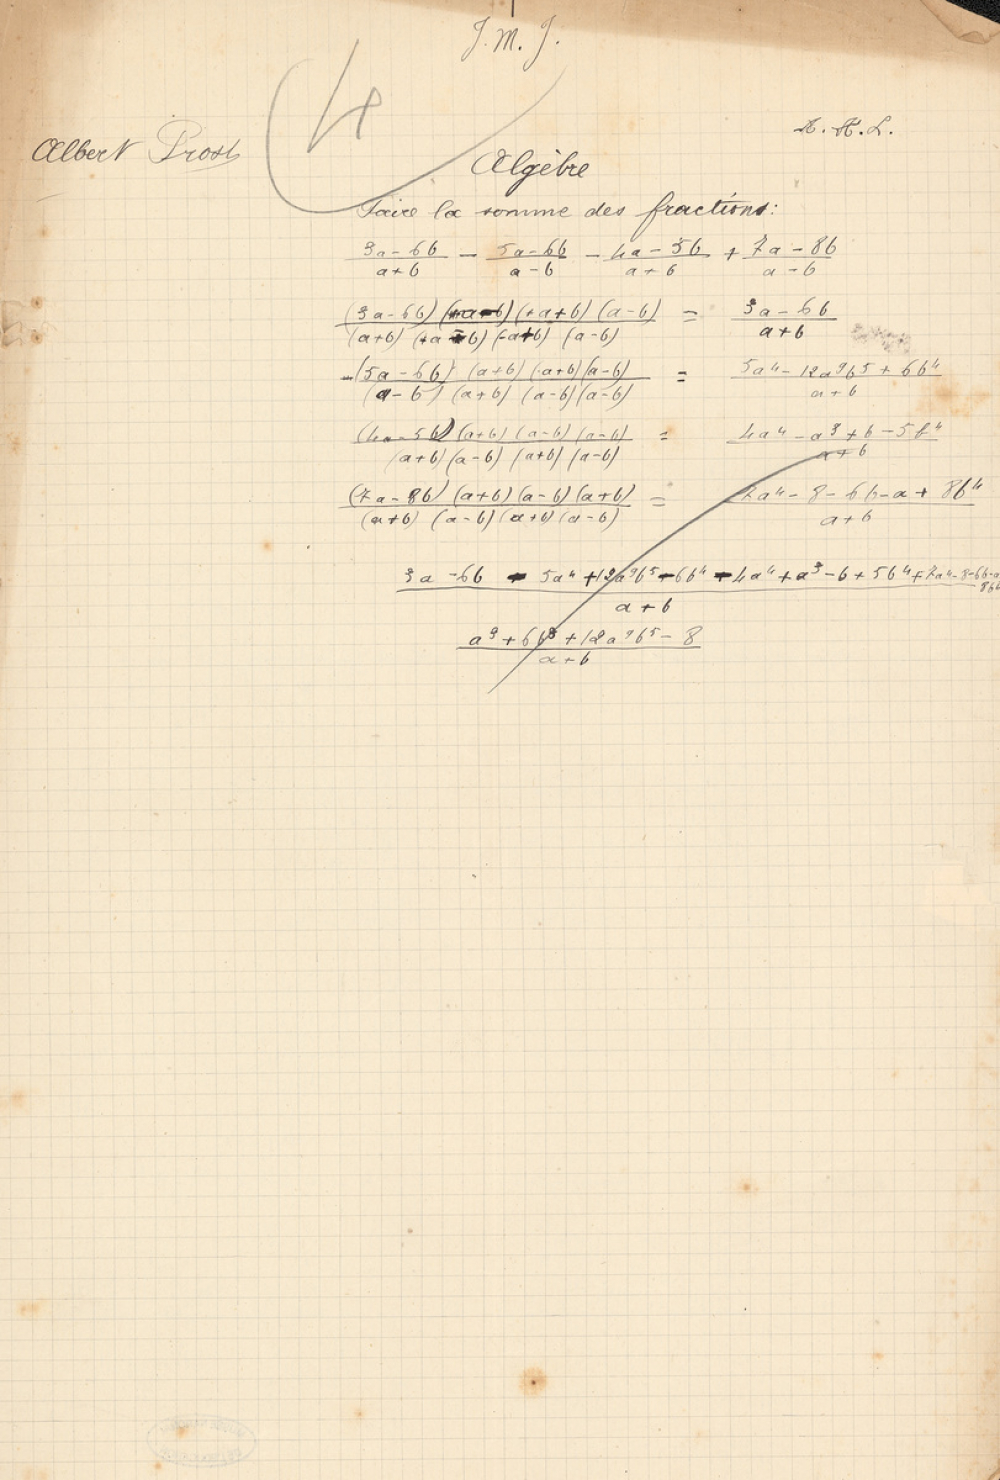 J. M. J.
4
A. A. L.
Albert Prost
Algèbre
Faire la somme des fractions:
(3a-6b)/(a+b) - (5a-6b)/(a-b) - (4a-5b)/(a+b) + (7a-8b)/(a-b)
(3a-6b) (+a-b) (+a+b) (a-b) / (a+b) (+a-b) (-a+b) (a-b) = (3a-6b)/(a+b)
-(5a-6b) (a+b) (-a+b) (a-b) / (a-b) (a+b) (a-b) (a-b) = (5a⁴-12a⁹b⁵+6b⁴)/(a+b)
(4a-5b) (a+b) (a-b) (a-b) / (a+b) (a-b) (a+b) (a-b) = (4a⁴-a³+b-5b⁴)/(a+b)
(7a-8b) (a+b) (a-b) (a+b) / (a+b) (a-b) (a+b) (a-b) = (7a⁴-8-6b-a+8b⁴)/(a+b)
(3a-6b - 5a⁴+12a⁹b⁵-6b⁴-4a⁴+a³-b+5b⁴+7a⁴-8-6b-a 8b⁴)/(a+b)
(a⁹+6b³+12a⁹b⁵-8)/(a+b)